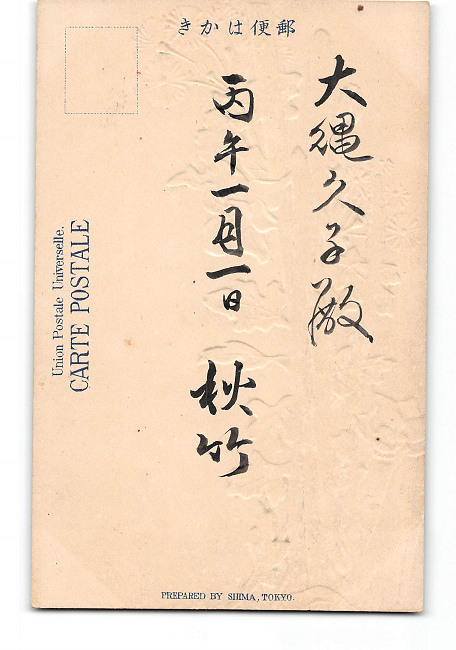 郵便はかき
大縄久子殿
丙午一月一日 秋竹
Union Postale Universelle.
CARTE POSTALE
PREPARED BY SHIMA, TOKYO.